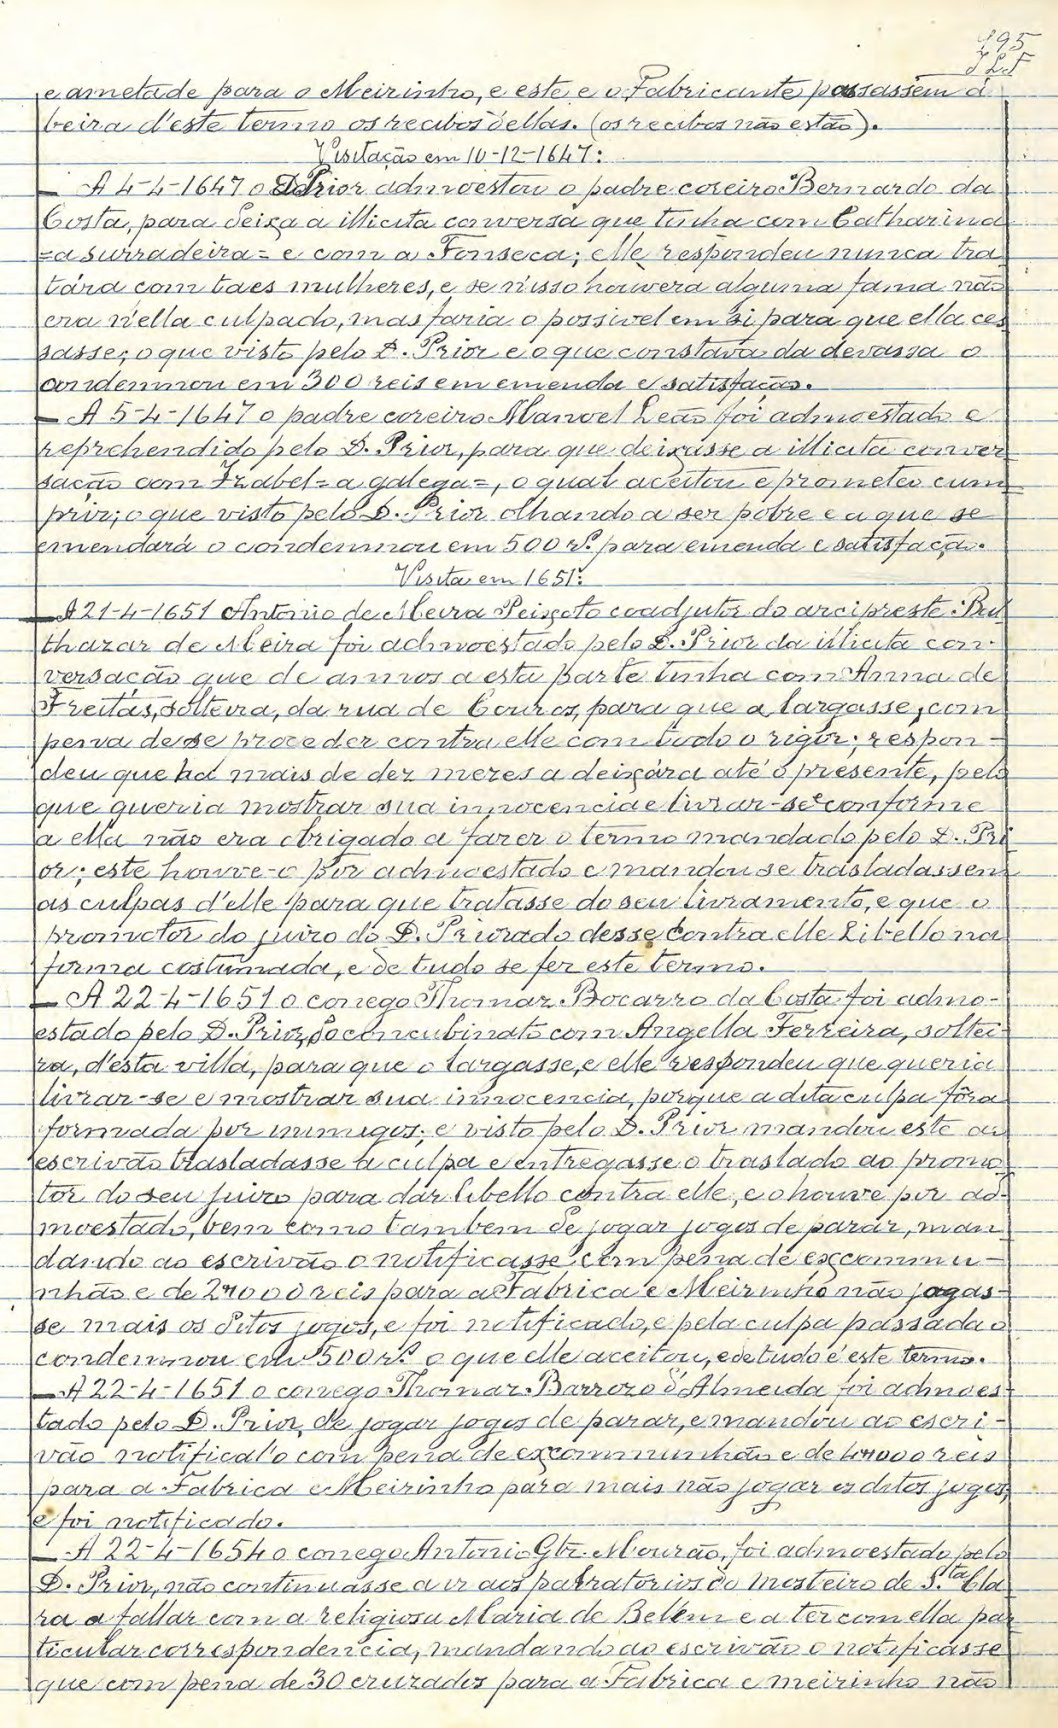 195
e ametade para o Meirinho, e este e o Fabricante passassem á
beira d'este termo os recibos dellas. (os recibos não estão).
Visitação em 10-12-1647:
— A 4-4-1647 o D. Prior admoestou o padre coreiro Bernardo da
Costa, para deixa a illicita conversa que tinha com Catharina
=a surradeira= e com a Fonseca; elle respondeu nunca tra
tára com taes mulheres, e se n'isso houvera alguma fama não
era n'ella culpado, mas faria o possivel em si para que ella ces
sasse; o que visto pelo D. Prior e o que constava da devassa o
condemnou em 300 reis em emenda e satisfação.
— A 5-4-1647 o padre coreiro Manoel Leão foi admoestado e
reprehendido pelo D. Prior, para que deixasse a illicita conver
sação com Izabel =a galega=, o qual aceitou e prometeo cum
prir; o que visto pelo D. Prior olhando a ser pobre e a que se
emendará o condemnou em 500 rs. para emenda e satisfação.
Visita em 1651:
— A 21-4-1651 Antonio de Meira Peixoto coadjutor do arcipreste Bal
thazar de Meira foi admoestado pelo D. Prior da illicita con-
versação que de annos a esta parte tinha com Anna de
Freitas, solteira, da rua de Couros, para que a largasse, com
pena de se proceder contra elle com todo o rigor; respon-
deu que há mais de dez mezes a deixára até o presente, pelo
que queria mostrar sua innocencia e livrar-se e conforme
a ella não era obrigado a fazer o termo mandado pelo D. Pri
or; este houve-o por admoestado e mandou se trasladassem
as culpas d'elle para que tratasse do seu livramento, e que o
promotor do juizo do D. Priorado desse contra elle libello na
forma costumada, e de tudo se fez este termo.
— A 22-4-1651 o conego Thomaz Bocarro da Costa foi admo-
estado pelo D. Prior, do concubinato com Angella Ferreira, soltei-
ra, d'esta villa, para que o largasse, e elle respondeu que queria
livrar-se e mostrar sua innocencia, porque a dita culpa fôra
formada por inimigos; e visto pelo D. Prior mandou este ao
escrivão trasladasse a culpa e entregasse o traslado ao promo
tor do seu juizo para dar libello contra elle, e o houve por ad-
moestado, bem como tambem de jogar jogos de parar, man
dando ao escrivão o notificasse com pena de excommu-
nhão e de 2$000 reis para a Fabrica e Meirinho não jogas-
se mais os ditos jogos, e foi notificado, e pela culpa passada o
condemnou em 500 rs. o que elle aceitou, e de tudo é este termo.
— A 22-4-1651 o conego Thomaz Barrozo d'Almeida foi admoes-
tado pelo D. Prior, de jogar jogos de parar, e mandou ao escri-
vão notifical'o com pena de excommunhão e de 4$000 reis
para a Fabrica e Meirinho para mais não jogar os ditos jogos,
e foi notificado.
— A 22-4-1654 o conego Antonio Glz. Mourão, foi admoestado pelo
D. Prior, não continuasse a ir aos palratorios do mosteiro de S.ta Cla
ra a fallar com a religiosa Maria de Belém e a ter com ella par
ticular correspondencia, mandando ao escrivão o notificasse
que com pena de 30 cruzados para a Fabrica e meirinho não